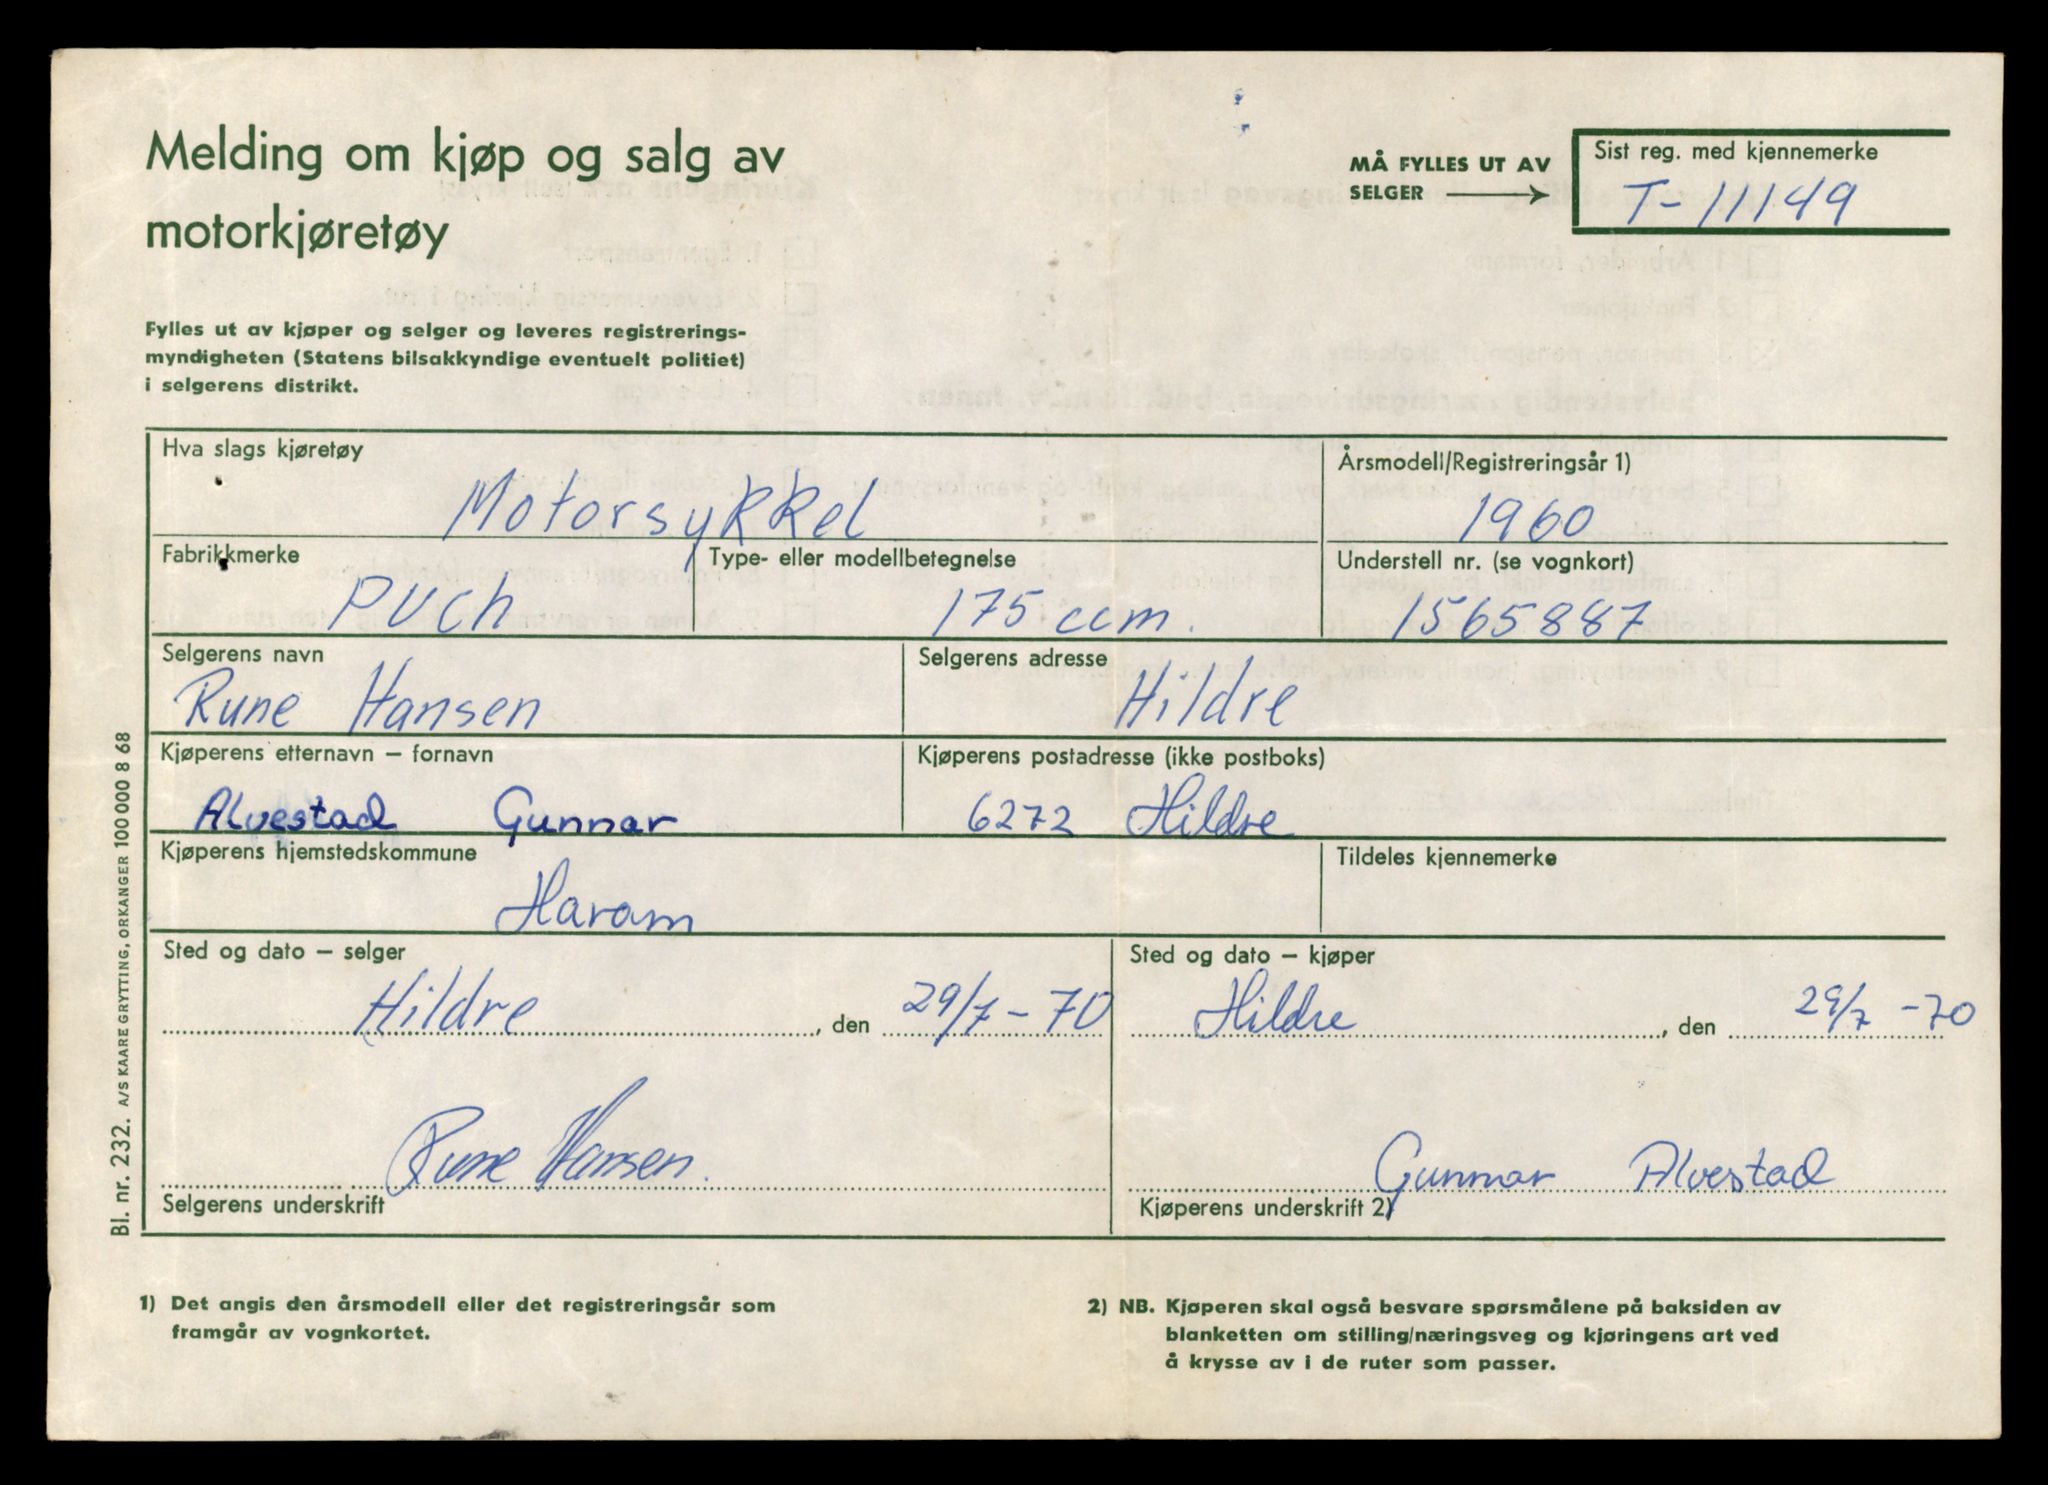 Melding om kjøp og salg av
motorkjøretøy
MÅ FYLLES UT AV
SELGER
Sist reg. med kjennemerke
T- 11149
Fylles ut av kjøper og selger og leveres registrerings-
myndigheten (Statens bilsakkyndige eventuelt politiet)
i selgerens distrikt.
Hva slags kjøretøy
Motorsykkel
Årsmodell/Registreringsår 1)
1960
Fabrikkmerke
PUCH
Type- eller modellbetegnelse
175 ccm.
Understell nr. (se vognkort)
1565887
Selgerens navn
Rune Hansen
Selgerens adresse
Hildre
Kjøperens etternavn – fornavn
Alvestad Gunnar
Kjøperens postadresse (ikke postboks)
6272 Hildre
Kjøperens hjemstedskommune
Haram
Tildeles kjennemerke
Sted og dato – selger
Hildre, den 29/7 - 70
Sted og dato – kjøper
Hildre, den 29/7 - 70
Rune Hansen.
Selgerens underskrift
Gunnar Alvestad
Kjøperens underskrift 2)
1) Det angis den årsmodell eller det registreringsår som
framgår av vognkortet.
2) NB. Kjøperen skal også besvare spørsmålene på baksiden av
blanketten om stilling/næringsveg og kjøringens art ved
å krysse av i de ruter som passer.
Bl. nr. 232. A/S KAARE GRYTTING, ORKANGER 100 000 8 68